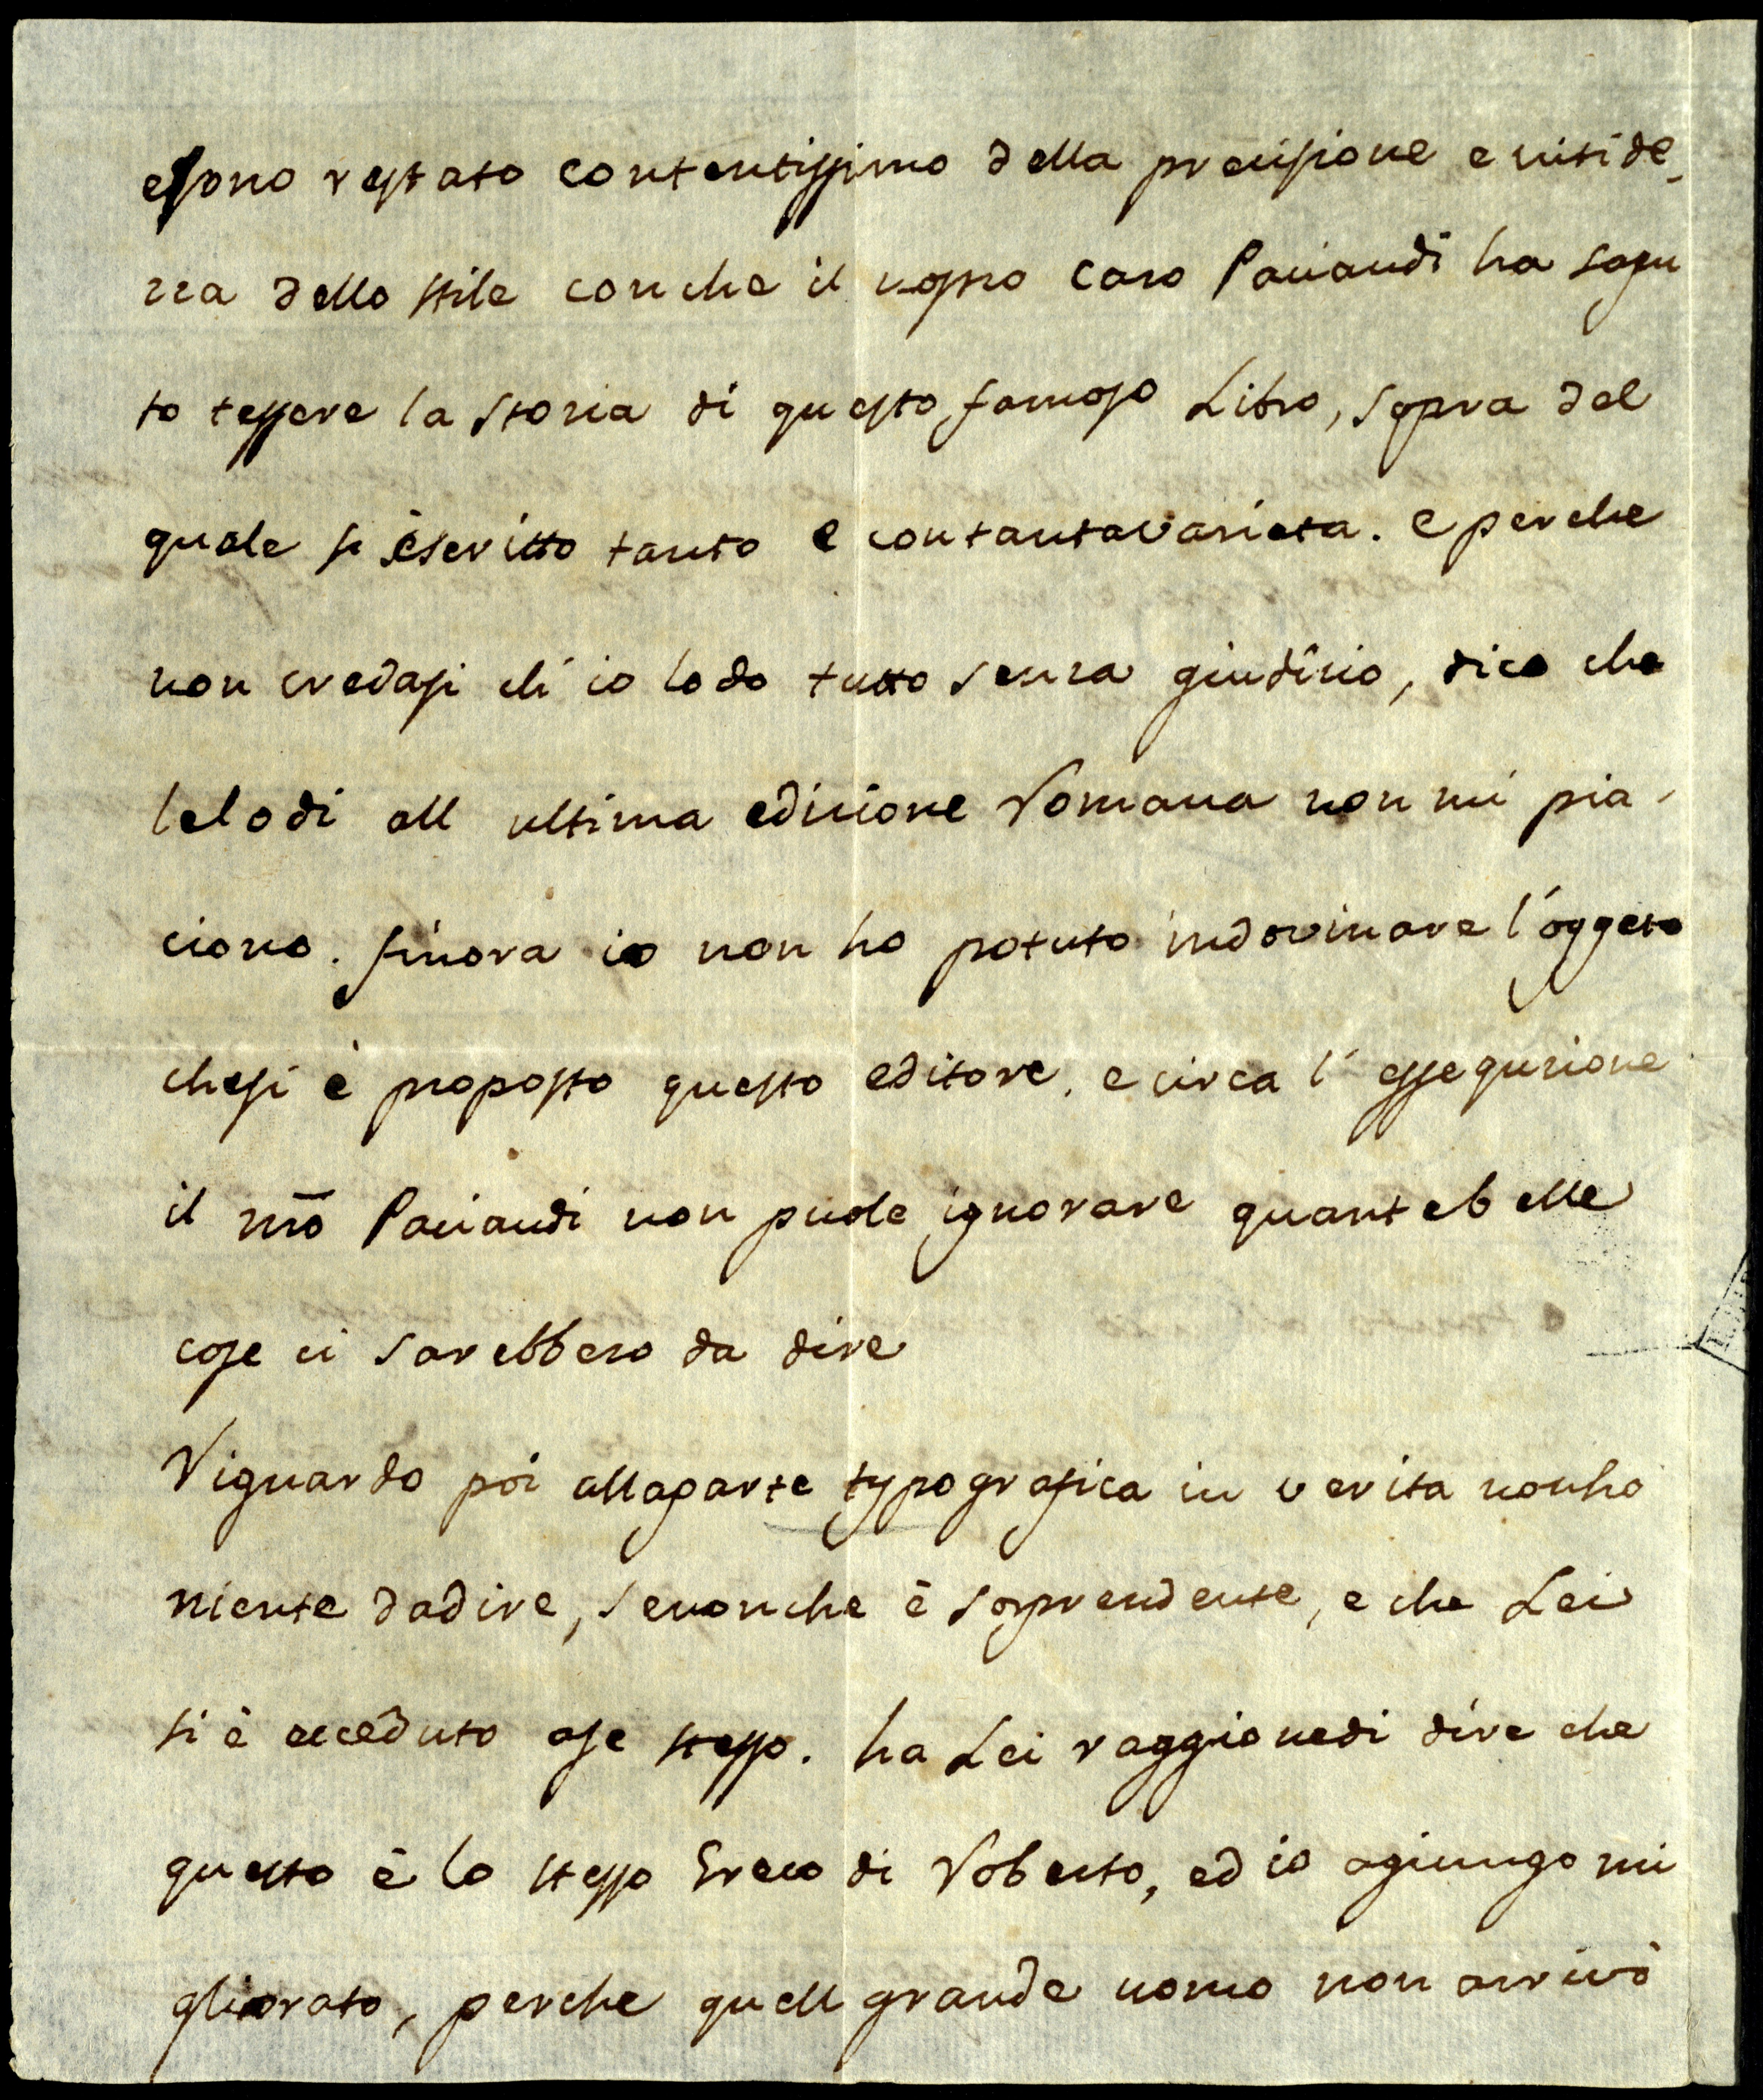 e sono restato contentissimo della precisione e nitide-
zza dello stile con che il nostro caro Paciaudi ha sapu
to tessere la storia di questo famoso Libro, sopra del
quale si è scritto tanto e con tanta varieta. e perche
non credasi ch' io lodo tutto senza giudizio, dico che
le lodi all ultima edizione Romana non mi pia-
ciono. finora io non ho potuto indovinare l'oggeto
che si è proposto questo editore, e circa l' essequzione
il nrō Paciaudi non puole ignorare quante belle
cose ci sarebbero da dire
Riguardo poi alla parte typografica in verita non ho
niente da dire, senonche è sorprendente, e che Lei
si è acceduto a se stesso. ha Lei raggione di dire che
questo è lo stesso Greco di Roberto, ed io agiungo mi
gliorato, perche quell grande uomo non arrivò